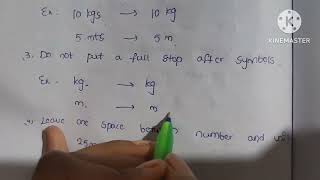 Ex: 10 kgs → 10 kg
5 mts → 5 m.
3. Do not put a full stop after symbols.
Ex. kg. → kg
m. → m
Leave one space number and
KINEMASTER